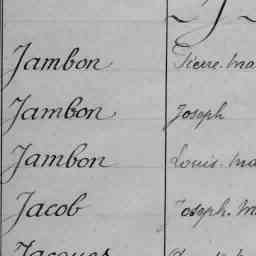 Jambon Pierre. Ma
Jambon Joseph
Jambon Louis. Ma
Jacob Joseph. M
Jacques